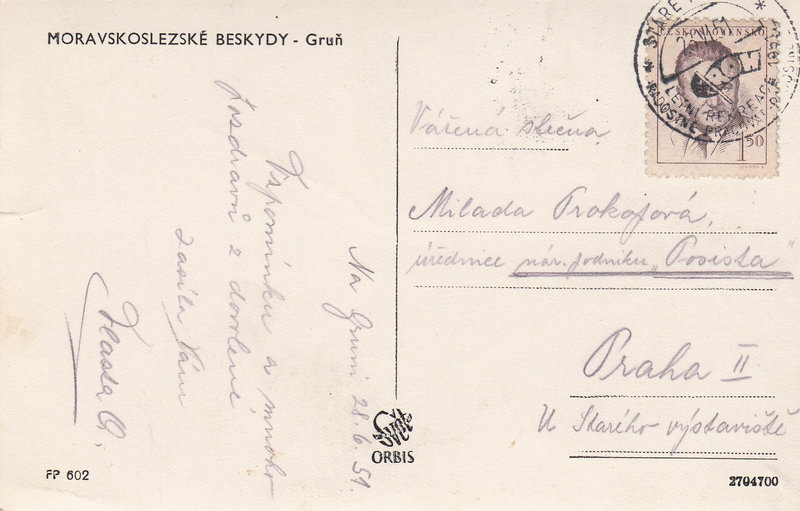 MORAVSKOSLEZSKÉ BESKYDY - Gruň
Na Gruni 28.6.51.
Vzpomínku a mnoho
pozdravů z dovolené
zasílá Vám
Vlasta
Vážená slečna
Milada Prokopová,
úřednice nár. podniku „Posista"
Praha II
U Starého výstaviště
ČESKOSLOVENSKO
1.50
STARÉ
LETNÍ REKREACE
RADOSTNÉ PRACOVNÍ
ORBIS
FP 602
2704700